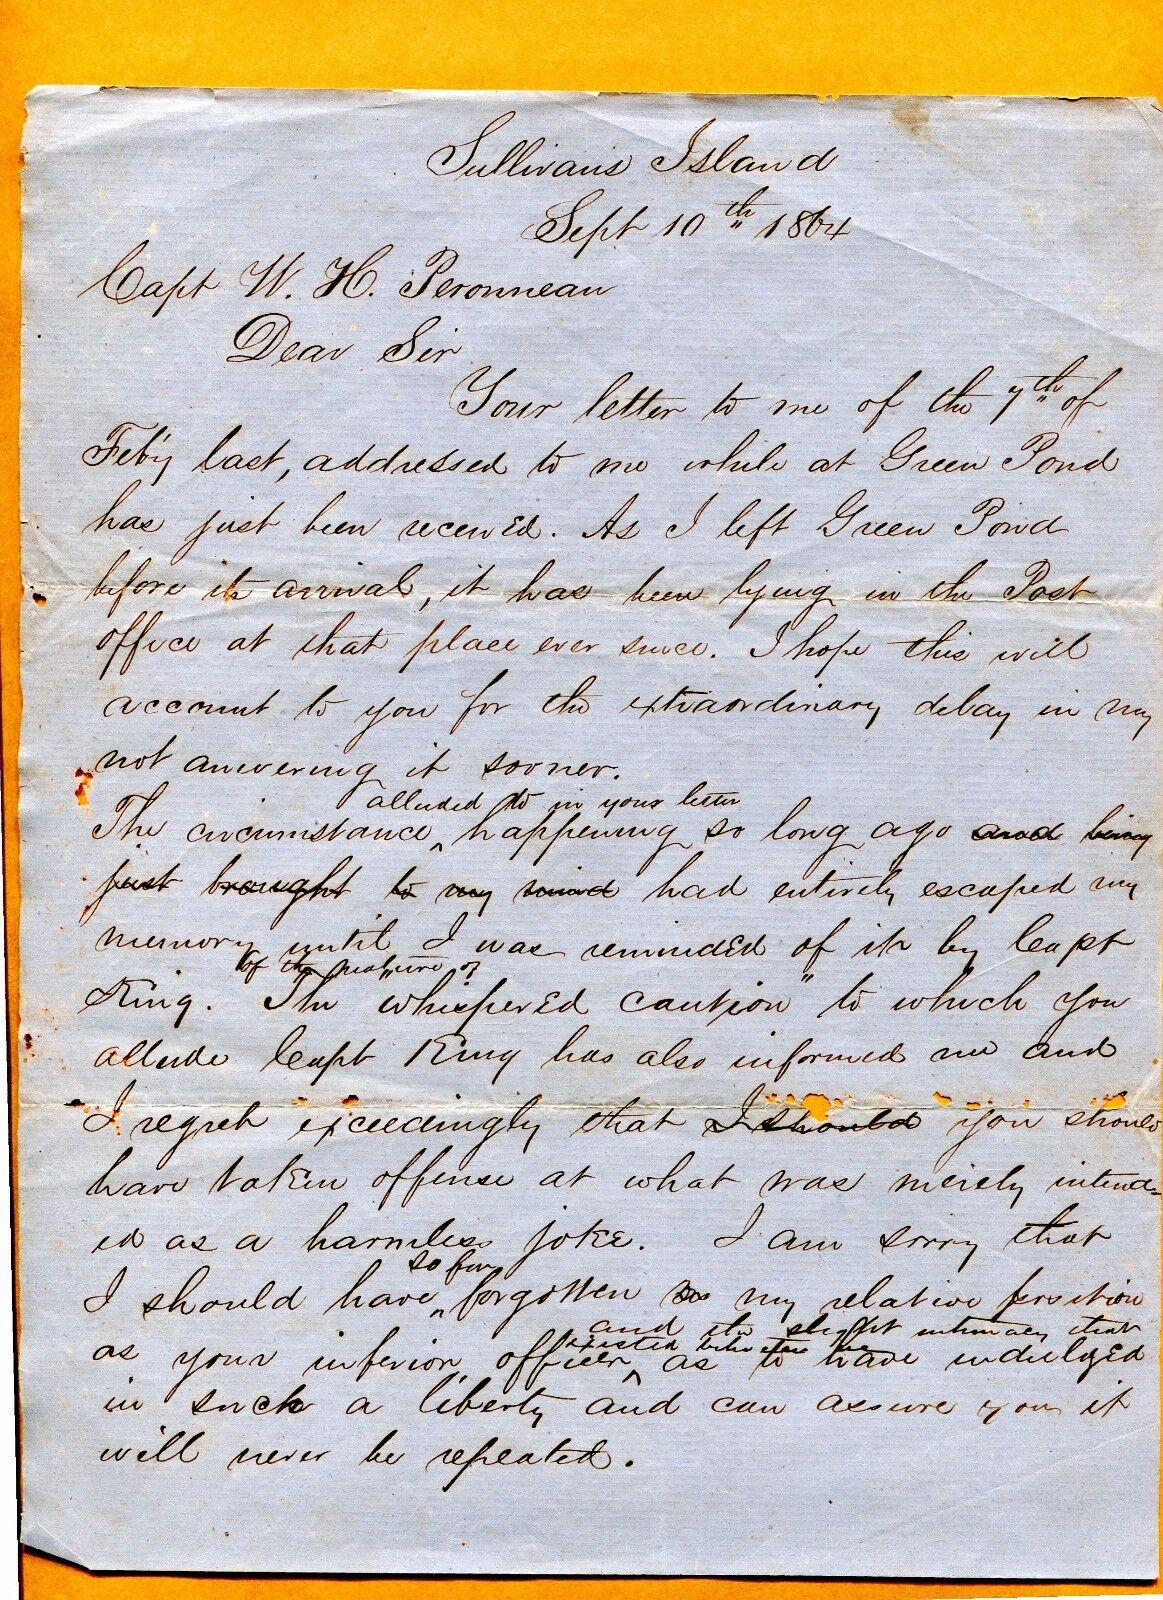 Sullivans Island
Sept 10th 1864
Capt W. H. Peronneau
Dear Sir
Your letter to me of the 7th of
Feb'y last, addressed to me while at Green Pond
has just been received. As I left Green Pond
before its arrival, it has been lying in the Post
office at that place ever since. I hope this will
account to you for the extraordinary delay in my
not answering it sooner.
alluded to in your letter
The circumstance happening so long ago and being
just brought to my mind had entirely escaped my
memory until I was reminded of it by Capt
of the nature of
King. The "whispered caution" to which you
allude Capt King has also informed me and
I regret exceedingly that I should you should
have taken offense at what was merely intend-
ed as a harmless joke. I am sorry that
so far
I should have forgotten my relative position
and the slight intimacy that
existed between us
as your inferior officer, as to have indulged
in such a "liberty" and can assure you it
will never be repeated.